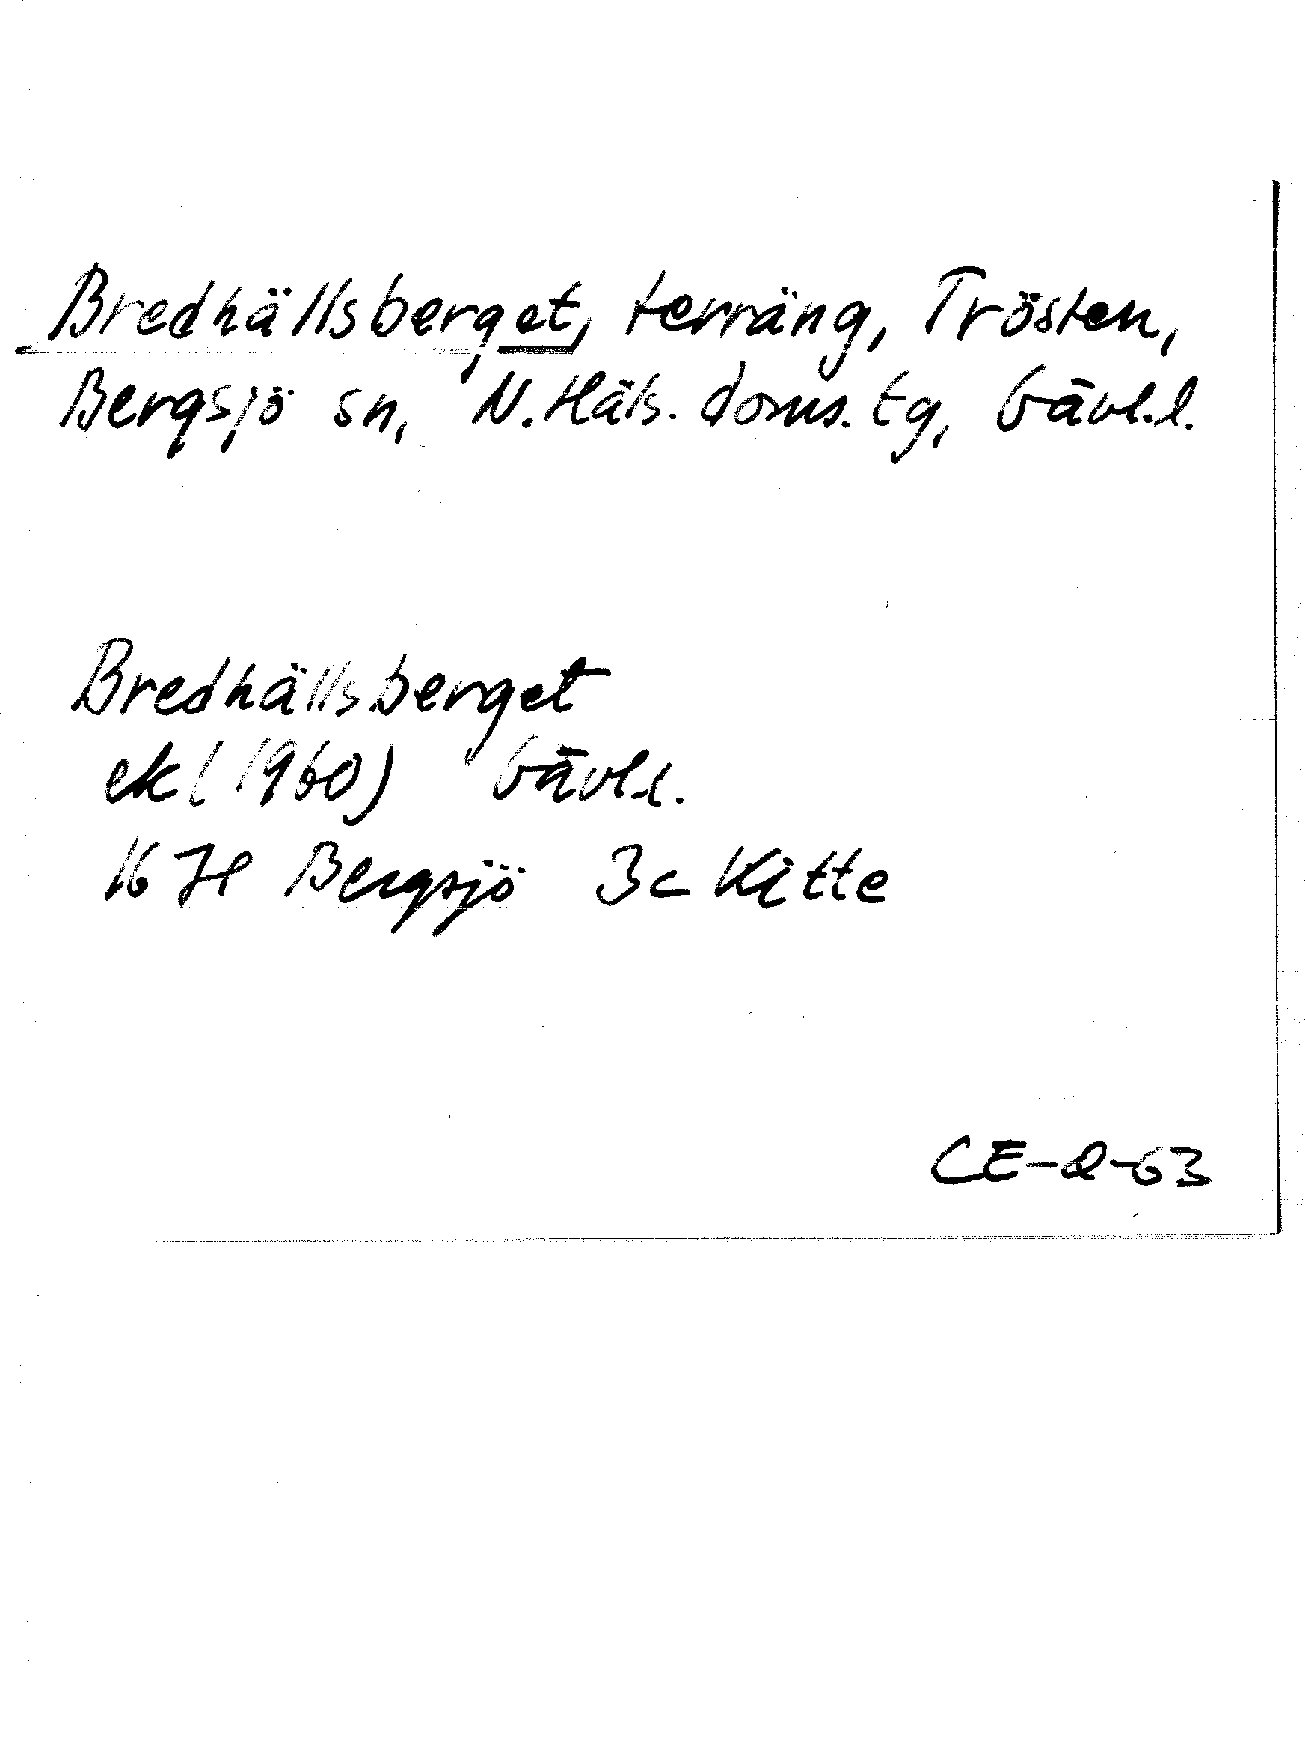 Bredhällsberget, terräng, Trösten,
Bergsjö sn, N. Häls. doms. tg, Gävl.l.
Bredhällsberget
ek (1960) Gävl.l.
16 H Bergsjö 3c Kitte
CE-Q-63